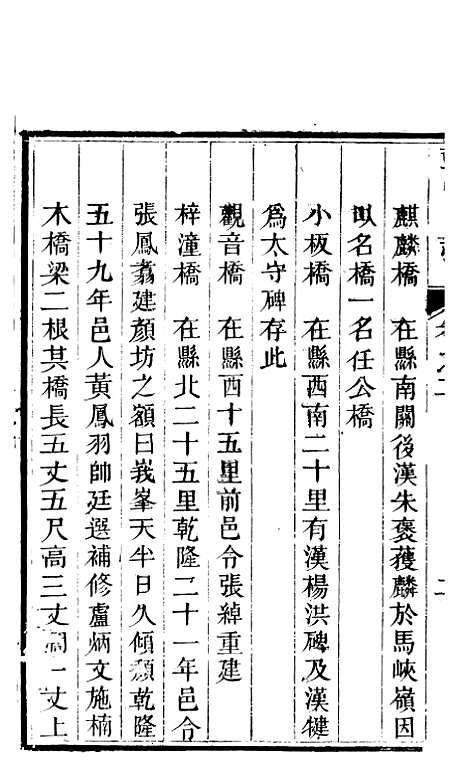 麒麟橋　在縣南關後漢朱褒獲麟於馬峽嶺因
以名橋一名任公橋
小板橋　在縣西南二十里有漢楊洪碑及漢犍
爲太守碑存此
觀音橋　在縣西十五里前邑令張綽重建
梓潼橋　在縣北二十五里乾隆二十一年邑令
張鳳翥建顏坊之額曰峩峯天半日久傾頹乾隆
五十九年邑人黃鳳羽帥廷選補修盧炳文施楠
木橋梁二根其橋長五丈五尺高三丈濶一丈上